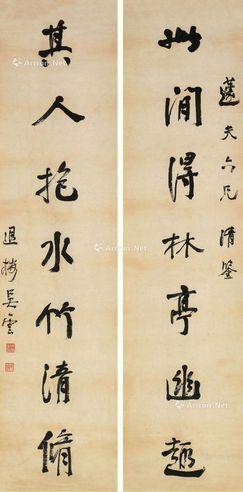 蘧夫六兄清鉴
此间得林亭幽趣
其人抱水竹清脩
退楼吴云
Artron.Net